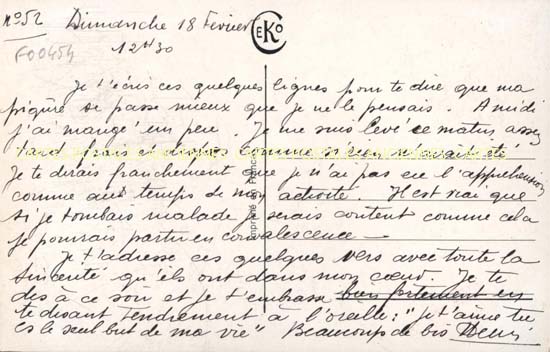 n° 52 Dimanche 18 Février
12H30
F00454
CEKO
Je t'écris ces quelques lignes pour te dire que ma
piqûre se passe mieux que je ne le pensais. A midi
j'ai mangé un peu. Je me suis levé ce matin assez
tard frais et dispos comme si rien n'avait été
Je te dirais franchement que je n'ai pas eu l'appréhension
comme aux temps de mon activité. Il est vrai que
si je tombais malade je serais content comme cela
je pourrais partir en convalescence —
Je t'adresse ces quelques vers avec toute la
sincérité qu'ils ont dans mon cœur. Je te
dis à ce soir et je t'embrasse bien fortement en
te disant tendrement à l'oreille : "je t'aime tu
es le seul but de ma vie" Beaucoup de bis Denis